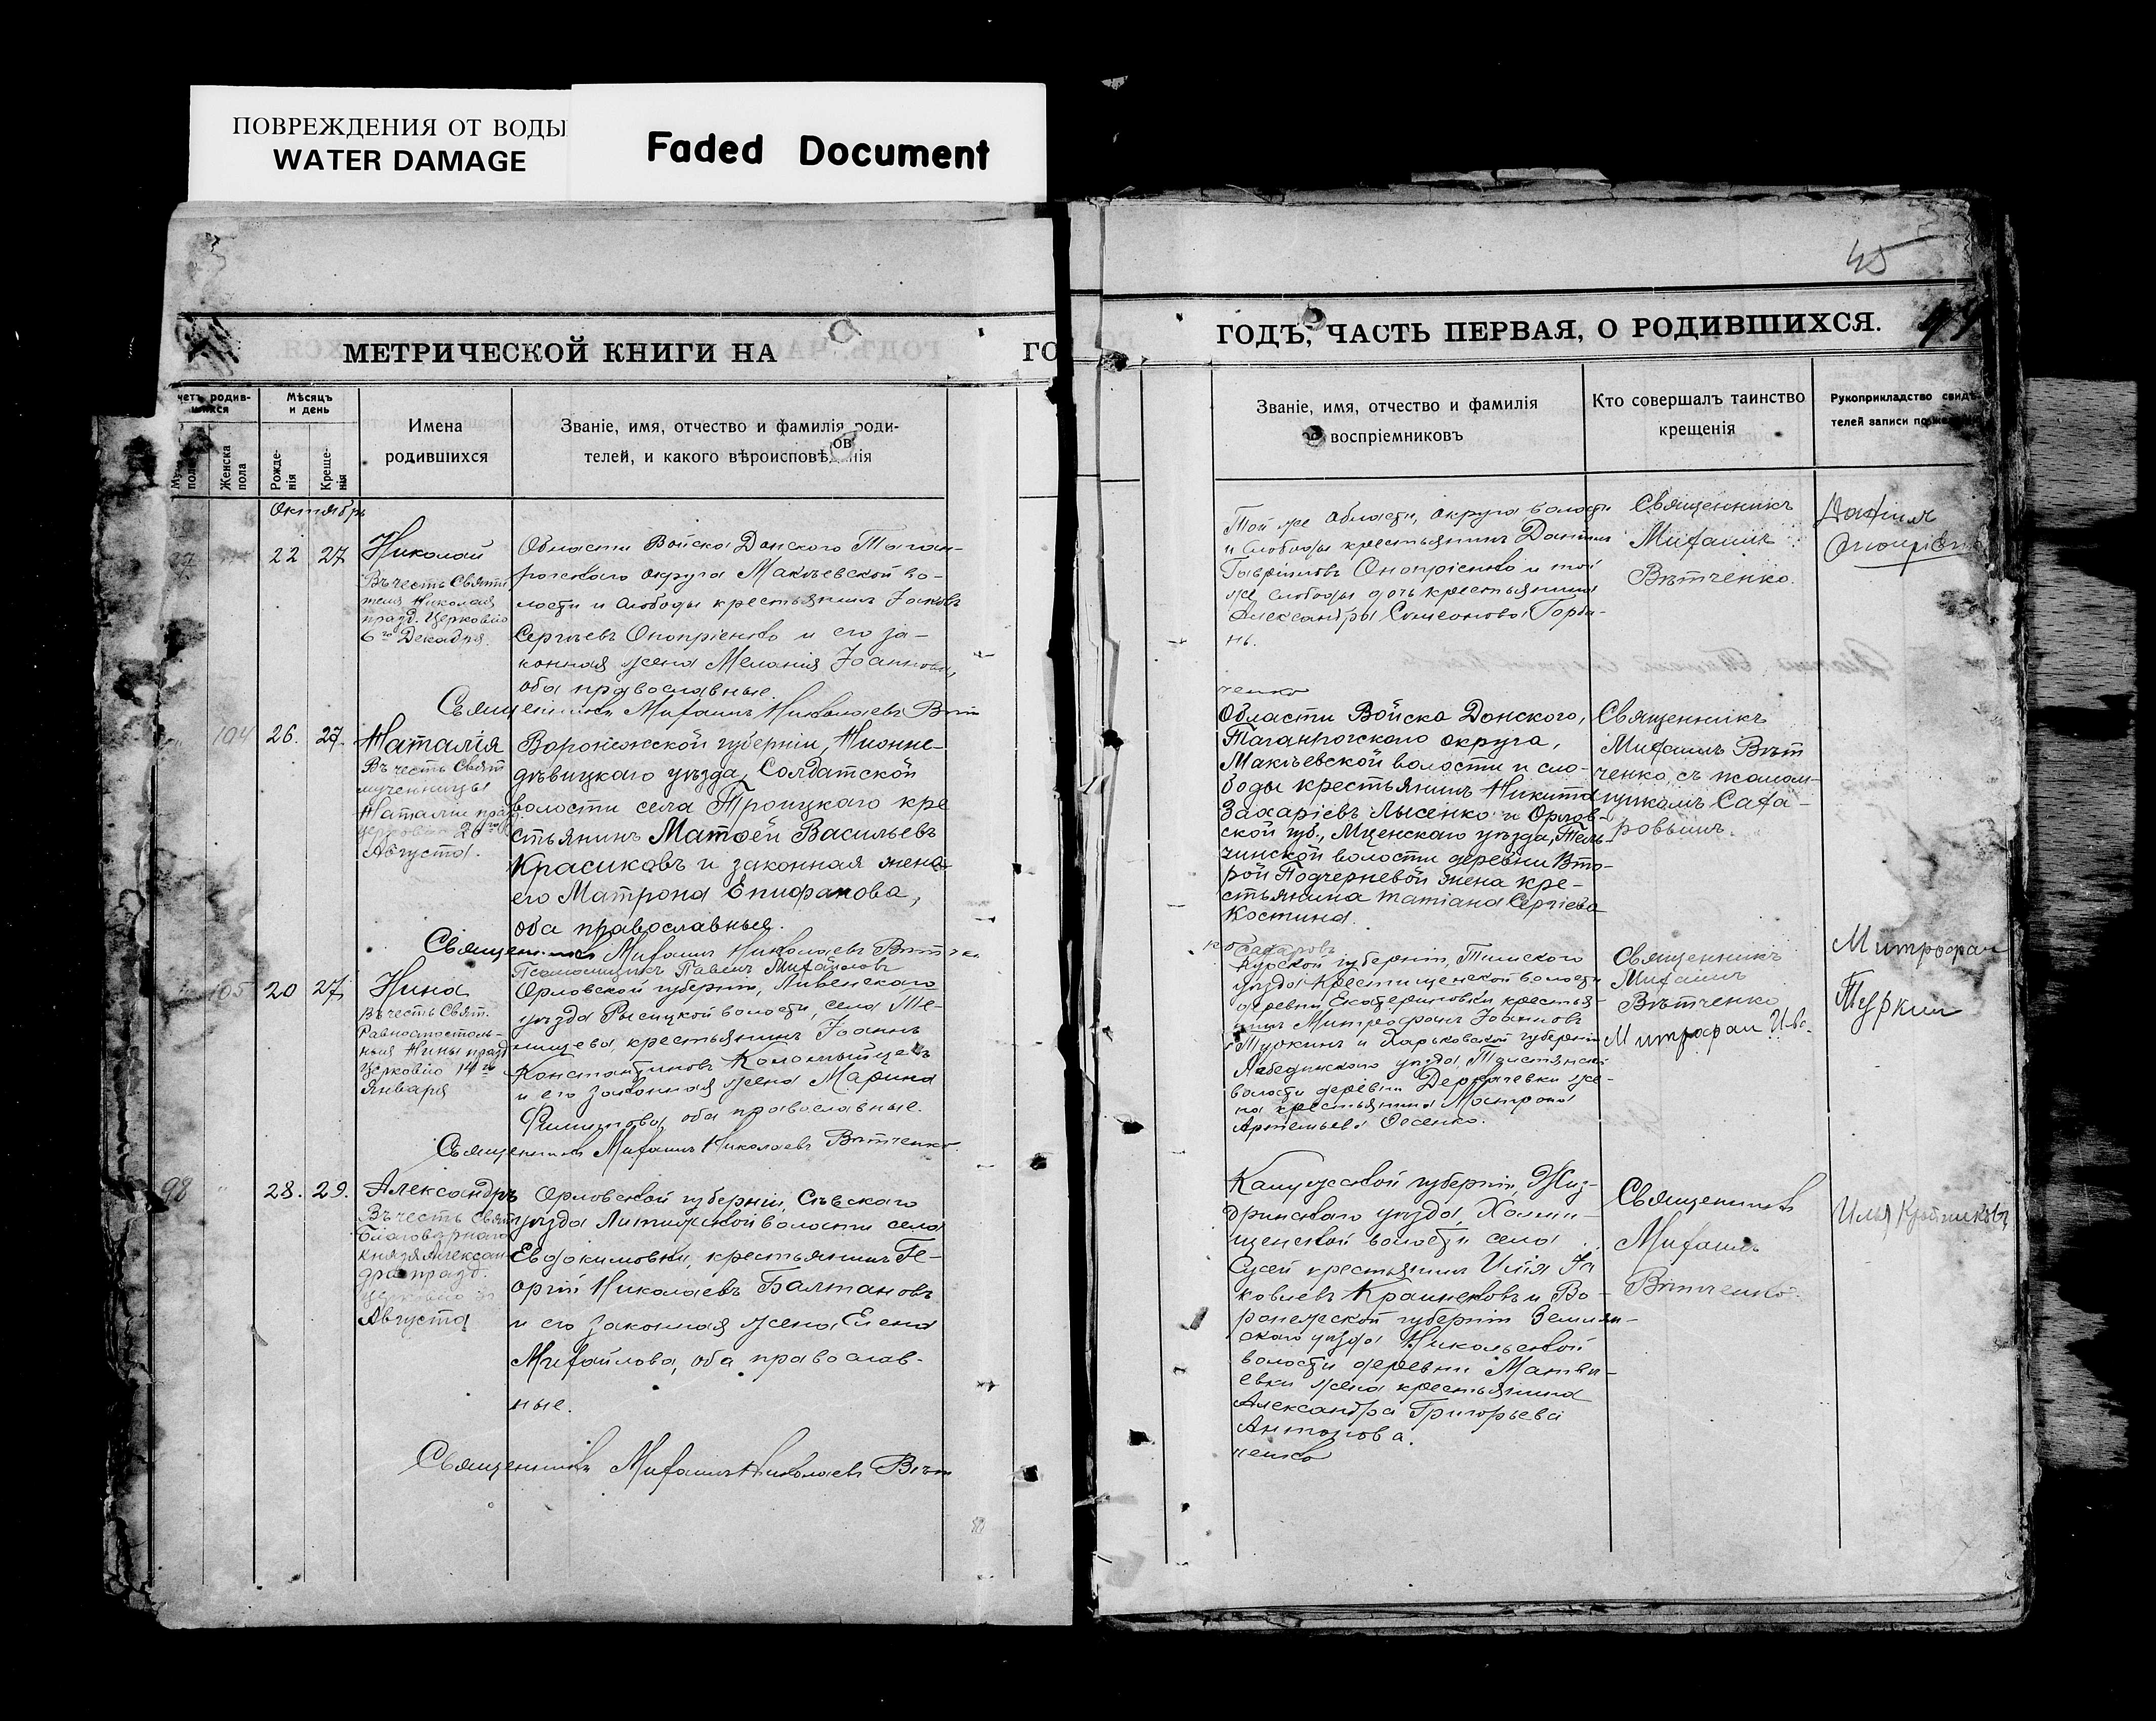 ПОВРЕЖДЕНИЯ ОТ ВОДЫ
WATER DAMAGE
Faded Document
45
МЕТРИЧЕСКОЙ КНИГИ НА
ГО
ГОДЪ, ЧАСТЬ ПЕРВАЯ, О РОДИВШИХСЯ.
четъ родив-
шихся
Мѣсяцъ
и день
Женска
пола
Рожде-
нія
Креще-
нія
Имена
родившихся
Званіе, имя, отчество и фамилія роди-
телей, и какого вѣроисповѣданія
Званіе, имя, отчество и фамилія
воспріемниковъ
Кто совершалъ таинство
крещенія
Рукоприкладство свидѣ-
телей записи по
Октябрь
22 27
Николай
Въ честь Святи
теля Николая
празд. Церковію
6го Декабря
Области Войска Донского Таган-
рогскаго округа Макѣевской во-
лости и слободы крестьянинъ Іаковъ
Сергѣевъ Оноприенко и его за-
конная жена Меланія Іоаннова,
оба православные.
Священникъ Михаилъ Николаевъ Вѣт
Той же области, округа волости
и слободы крестьянинъ Даніилъ
Гавріиловъ Оноприенко и той
же слободы дочь крестьянина
Александра Симеонова Горба-
нь.
ченко
Священникъ
Михаилъ
Вѣтченко.
104 26. 27.
Наталія
Въ честь Свят
мученницы
Наталіи празд.
церковію 26го
Августа.
Воронежской губерніи, Нижне-
дѣвицкаго уѣзда, Солдатской
волости села Троицкаго кре
стьянинъ Матѳей Васильевъ
Красиковъ и законная жена
его Матрона Епифанова,
оба православные.
Священникъ Михаилъ Николаевъ Вѣтче
Псаломщикъ Павелъ Михайловъ
Области Войска Донского,
Таганрогскаго округа,
Макѣевской волости и сло-
боды крестьянинъ Никита
Захаріевъ Лысенко и Орлов-
ской губ., Мценскаго уѣзда, Тель-
чинской волости деревни Вто-
рой Подчерневой жена кре-
стьянина Татіана Сергіева
Костина.
Сахаровъ
Священникъ
Михаилъ Вѣт
ченко, съ псалом-
щикомъ Саха-
ровымъ.
105 20 27.
Нина
Въ честь Свят.
Равноапостоль-
ныя Нины празд
Церковію 14го
Января
Орловской губерніи, Ливенскаго
уѣзда
волости, села
крестьянинъ Іоаннъ
Константиновъ Коломыйцевъ
и его законная жена Марина
Филиппова, оба православные.
Священникъ Михаилъ Николаевъ Вѣтченко
Курской губерніи, Тимского
уѣзда Крестищенской волости
деревни Екатериновки, крестья-
нинъ Митрофанъ Іоанновъ
Туркинъ и Харьковской губерніи
Лебединскаго уѣзда,
волости деревни Деркачевки же-
на крестьянина Матрона
Артемьева
Священникъ
Михаилъ
Вѣтченко
Митрофан Ива.
Митрофан
Туркин
98 28. 29.
Александръ
Въ честь Свят
Благовѣрнаго
Князя Алексан
дра празд.
церковію
Августа
Орловской губерніи, Сѣвскаго
уѣзда Литижской волости села
Евдокимовки, крестьянинъ Ге-
оргій Николаевъ Балтановъ
и его законная жена Елена
Михайлова, оба православ-
ные.
Священникъ Михаилъ Николаевъ Вѣт
Калужской губерніи, Жиз-
дринскаго уѣзда,
волости села
крестьянинъ Илія Іа
ковлевъ и Во-
ронежской губерніи Землян-
скаго уѣзда Никольской
волости деревни Матвѣ-
евки жена крестьянина
Александра Григорьева
Антонова.
ченко
Священникъ
Михаилъ
Вѣтченко.
Илья